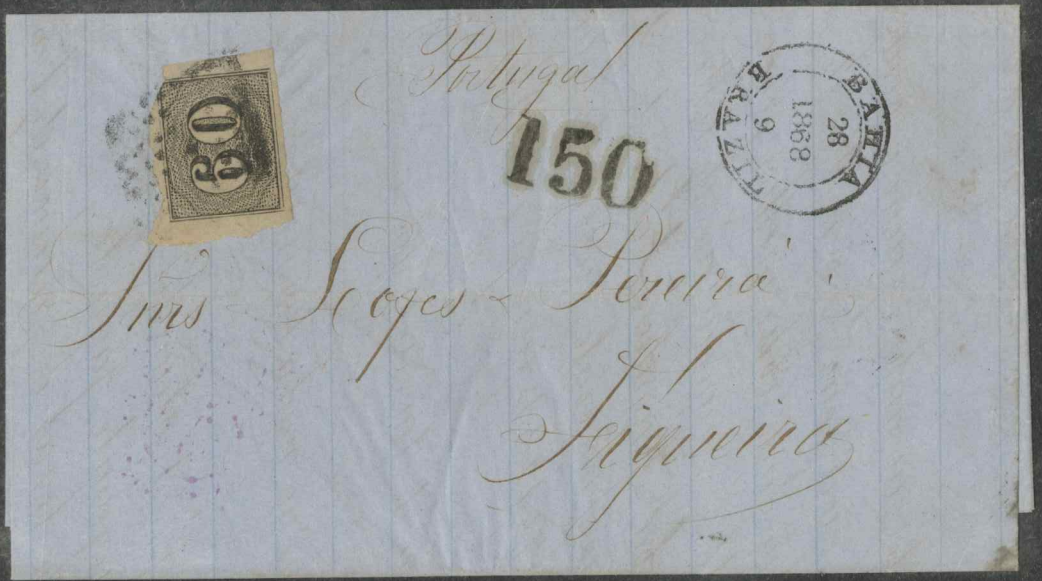 Portugal
60
150
BAHIA
28
1868
9
BRAZIL
Snrs Pereira
Figueira